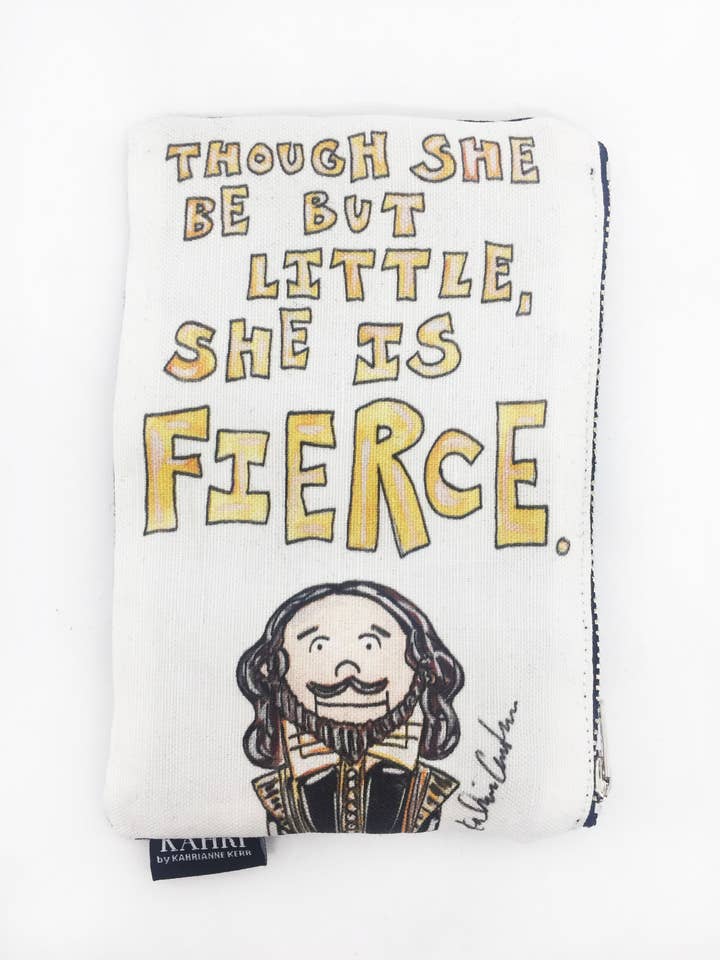 THOUGH SHE
BE BUT
LITTLE,
SHE IS
FIERCE.
KAHRI
by KAHRIANNE KERR